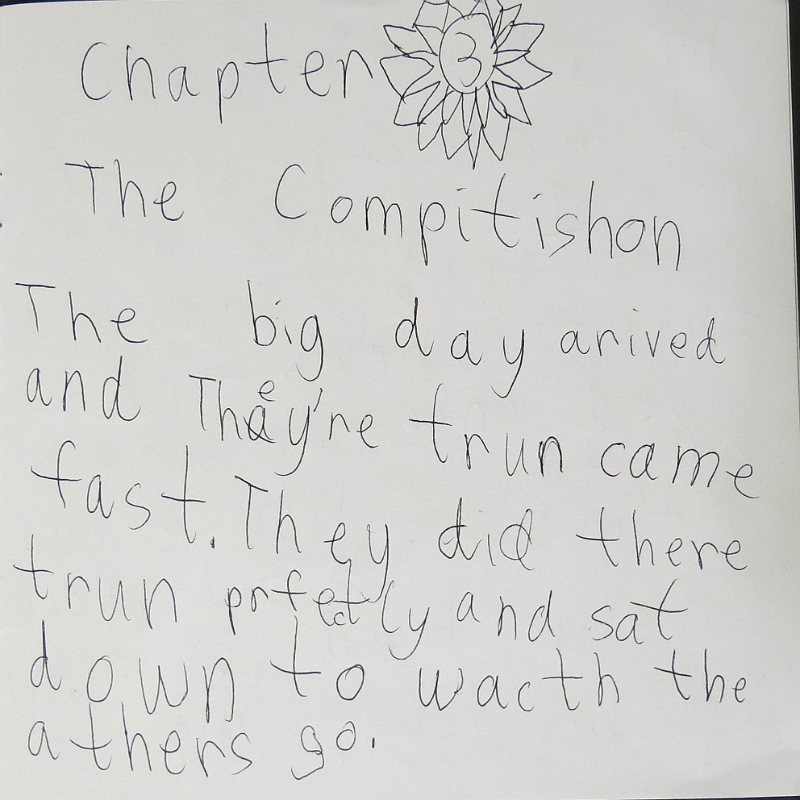 Chapter 3
The Compitishon
The big day arived
and They're trun came
fast. They did there
trun prfectly and sat
down to wacth the
athers go.